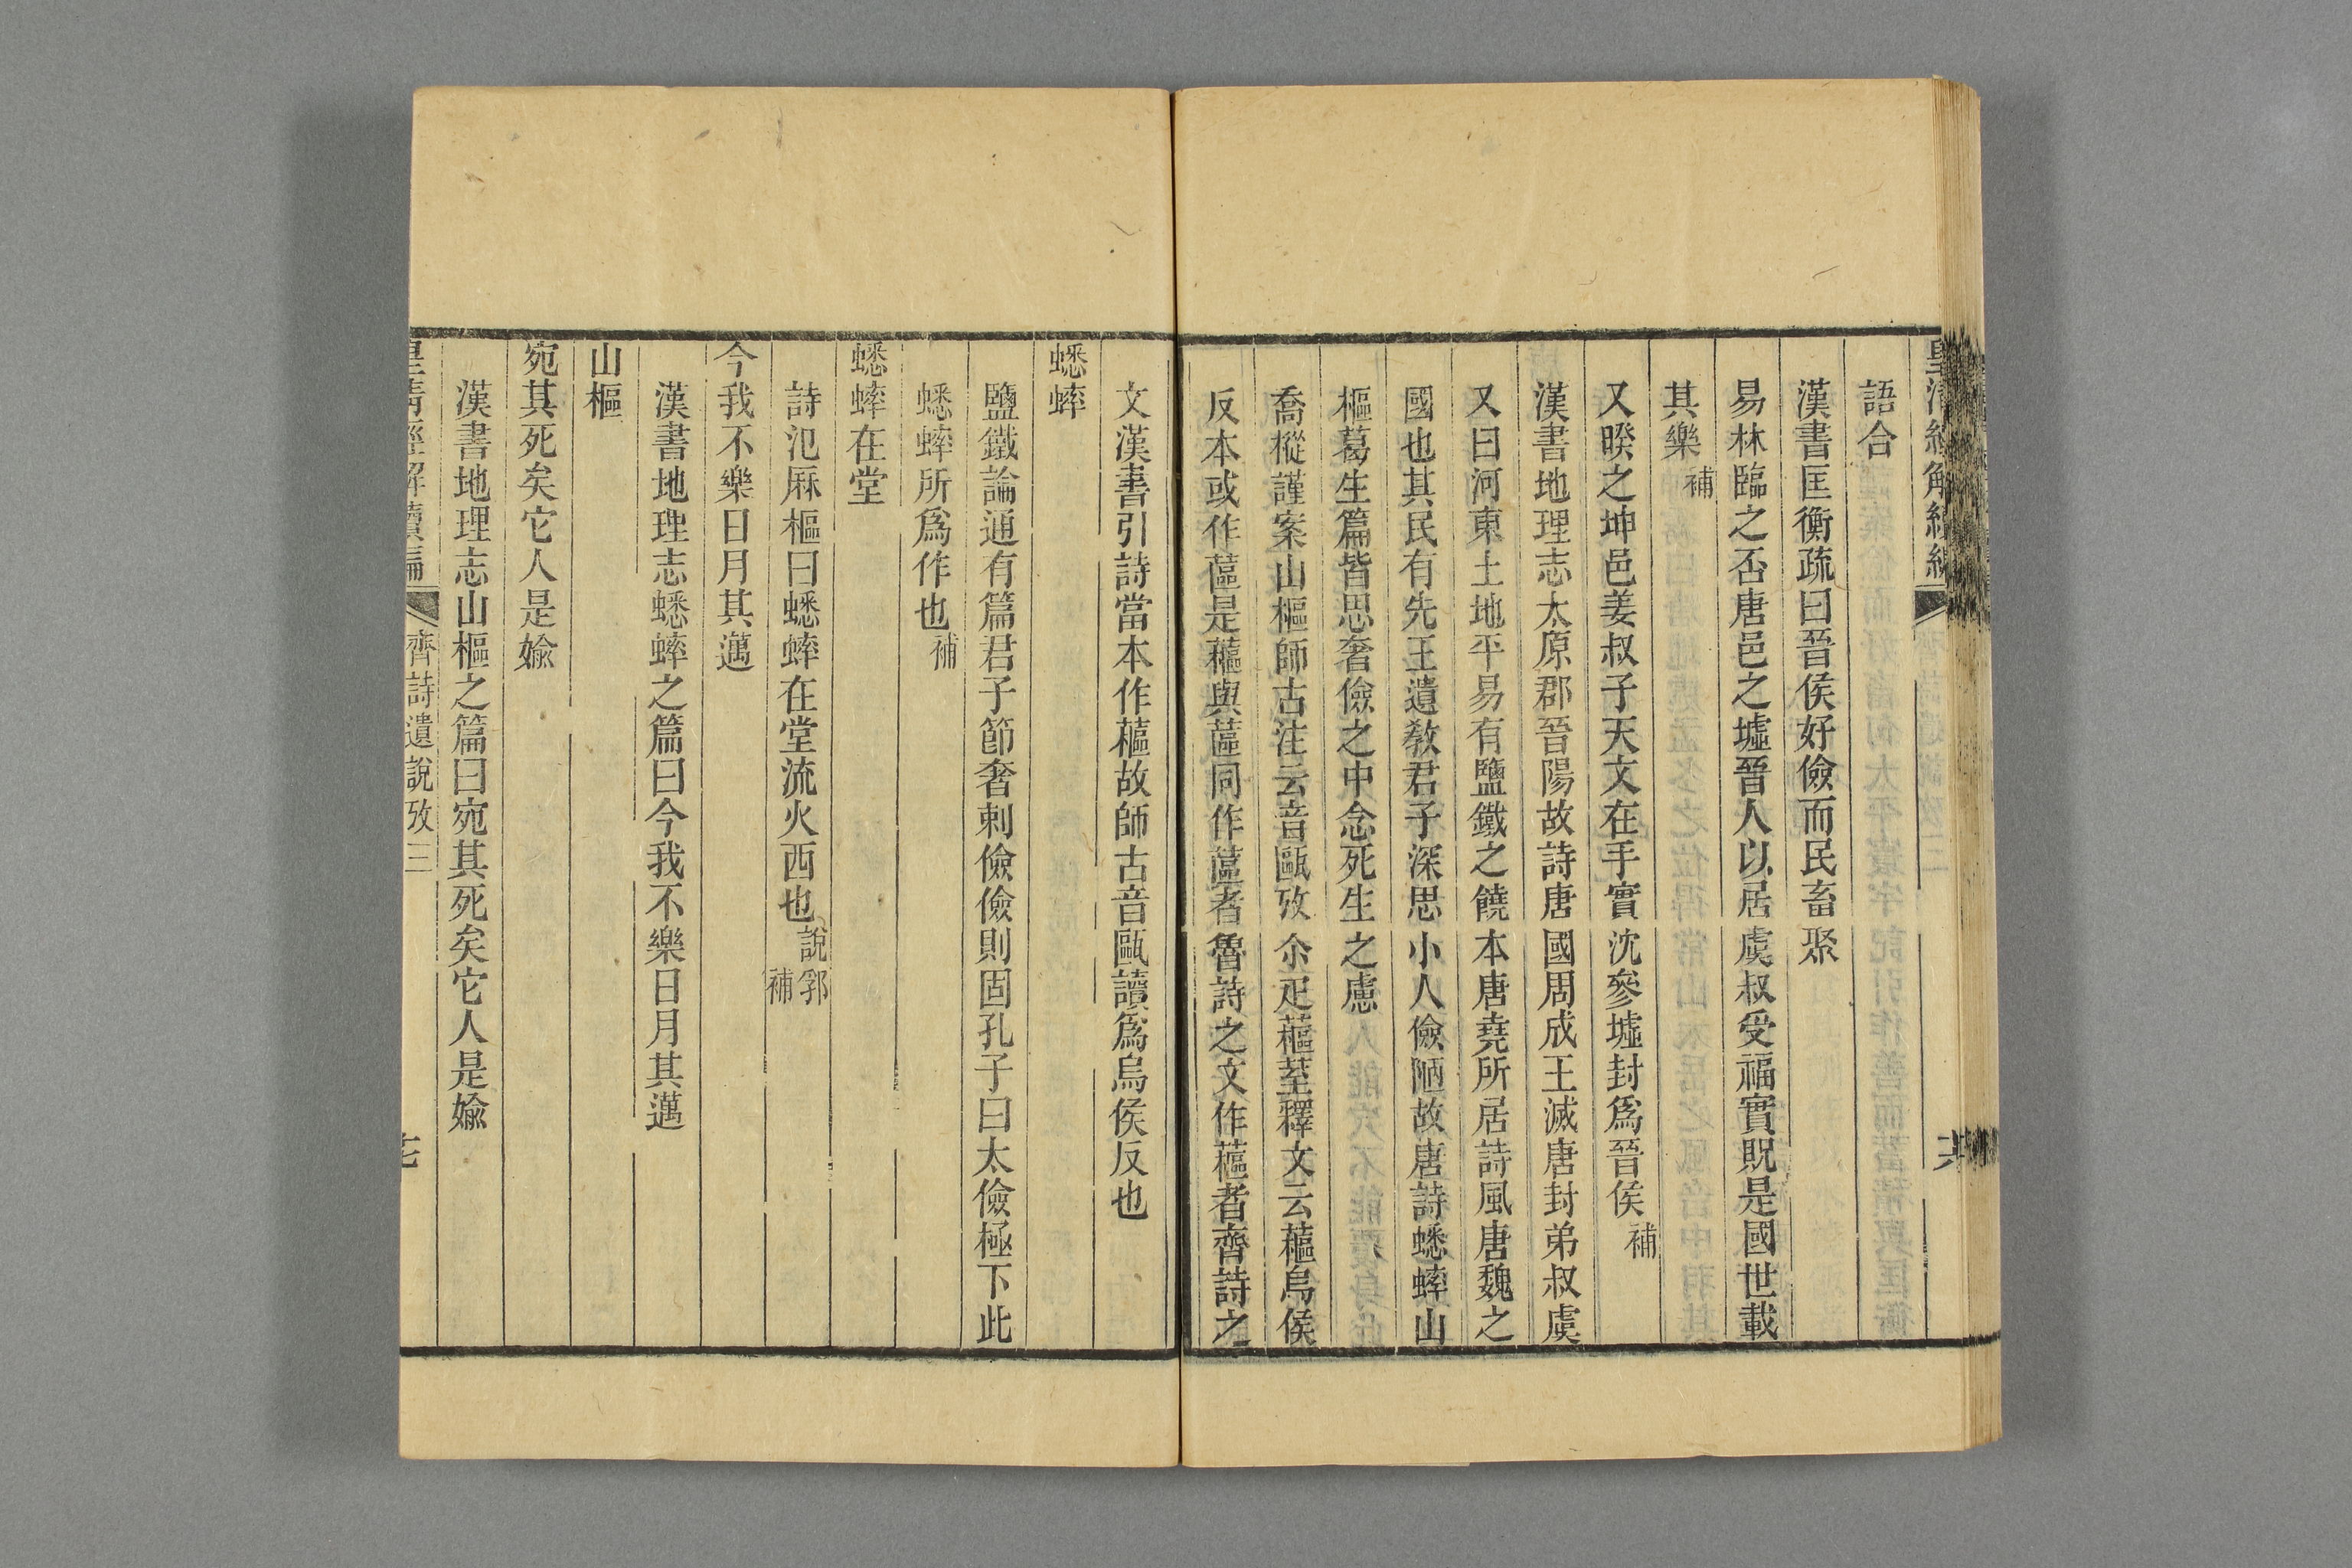 語合
漢書匡衡疏曰晉侯好儉而民畜聚
易林臨之否唐邑之墟晉人以居虞叔受福實貺是國世載
其樂補
又暌之坤邑姜叔子天文在手實沈參墟封爲晉侯補
漢書地理志太原郡晉陽故詩唐國周成王滅唐封弟叔虞
又曰河東土地平易有鹽鐵之饒本唐堯所居詩風唐魏之
國也其民有先王遺敎君子深思小人儉陋故唐詩蟋蟀山
樞葛生篇皆思奢儉之中念死生之慮
喬樅謹案山樞師古注云音甌攷尒疋蓲荎釋文云藲烏侯
反本或作蓲是藲與蓲同作蓲者魯詩之文作藲者齊詩之
文漢書引詩當本作藲故師古音甌讀爲烏侯反也
蟋蟀
鹽鐵論通有篇君子節奢刺儉儉則固孔子曰太儉極下此
蟋蟀所爲作也補
蟋蟀在堂
詩氾厤樞曰蟋蟀在堂流火西也說郛補
今我不樂日月其邁
漢書地理志蟋蟀之篇曰今我不樂日月其邁
山樞
宛其死矣它人是媮
漢書地理志山樞之篇曰宛其死矣它人是媮
皇淸經解續編
齊詩遺說攷三